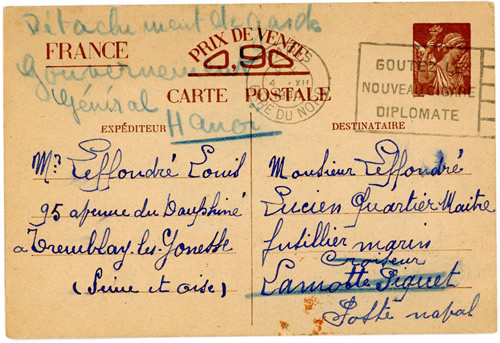 Détachement de garde
Gouvernement
Général
Hanoi
FRANCE
PRIX DE VENTE
0,90
CARTE POSTALE
PARIS
4 - XII
RUE DU NO
GOUTEZ
NOUVEAU CIGARE
DIPLOMATE
EXPÉDITEUR
Mr Leffondré Louis
95 avenue du Dauphiné
à Tremblay-les-Gonesse
(Seine et Oise)
DESTINATAIRE
Monsieur Leffondré
Lucien Quartier-Maitre
fusillier marin
Croiseur
Lamotte Piquet
Poste naval